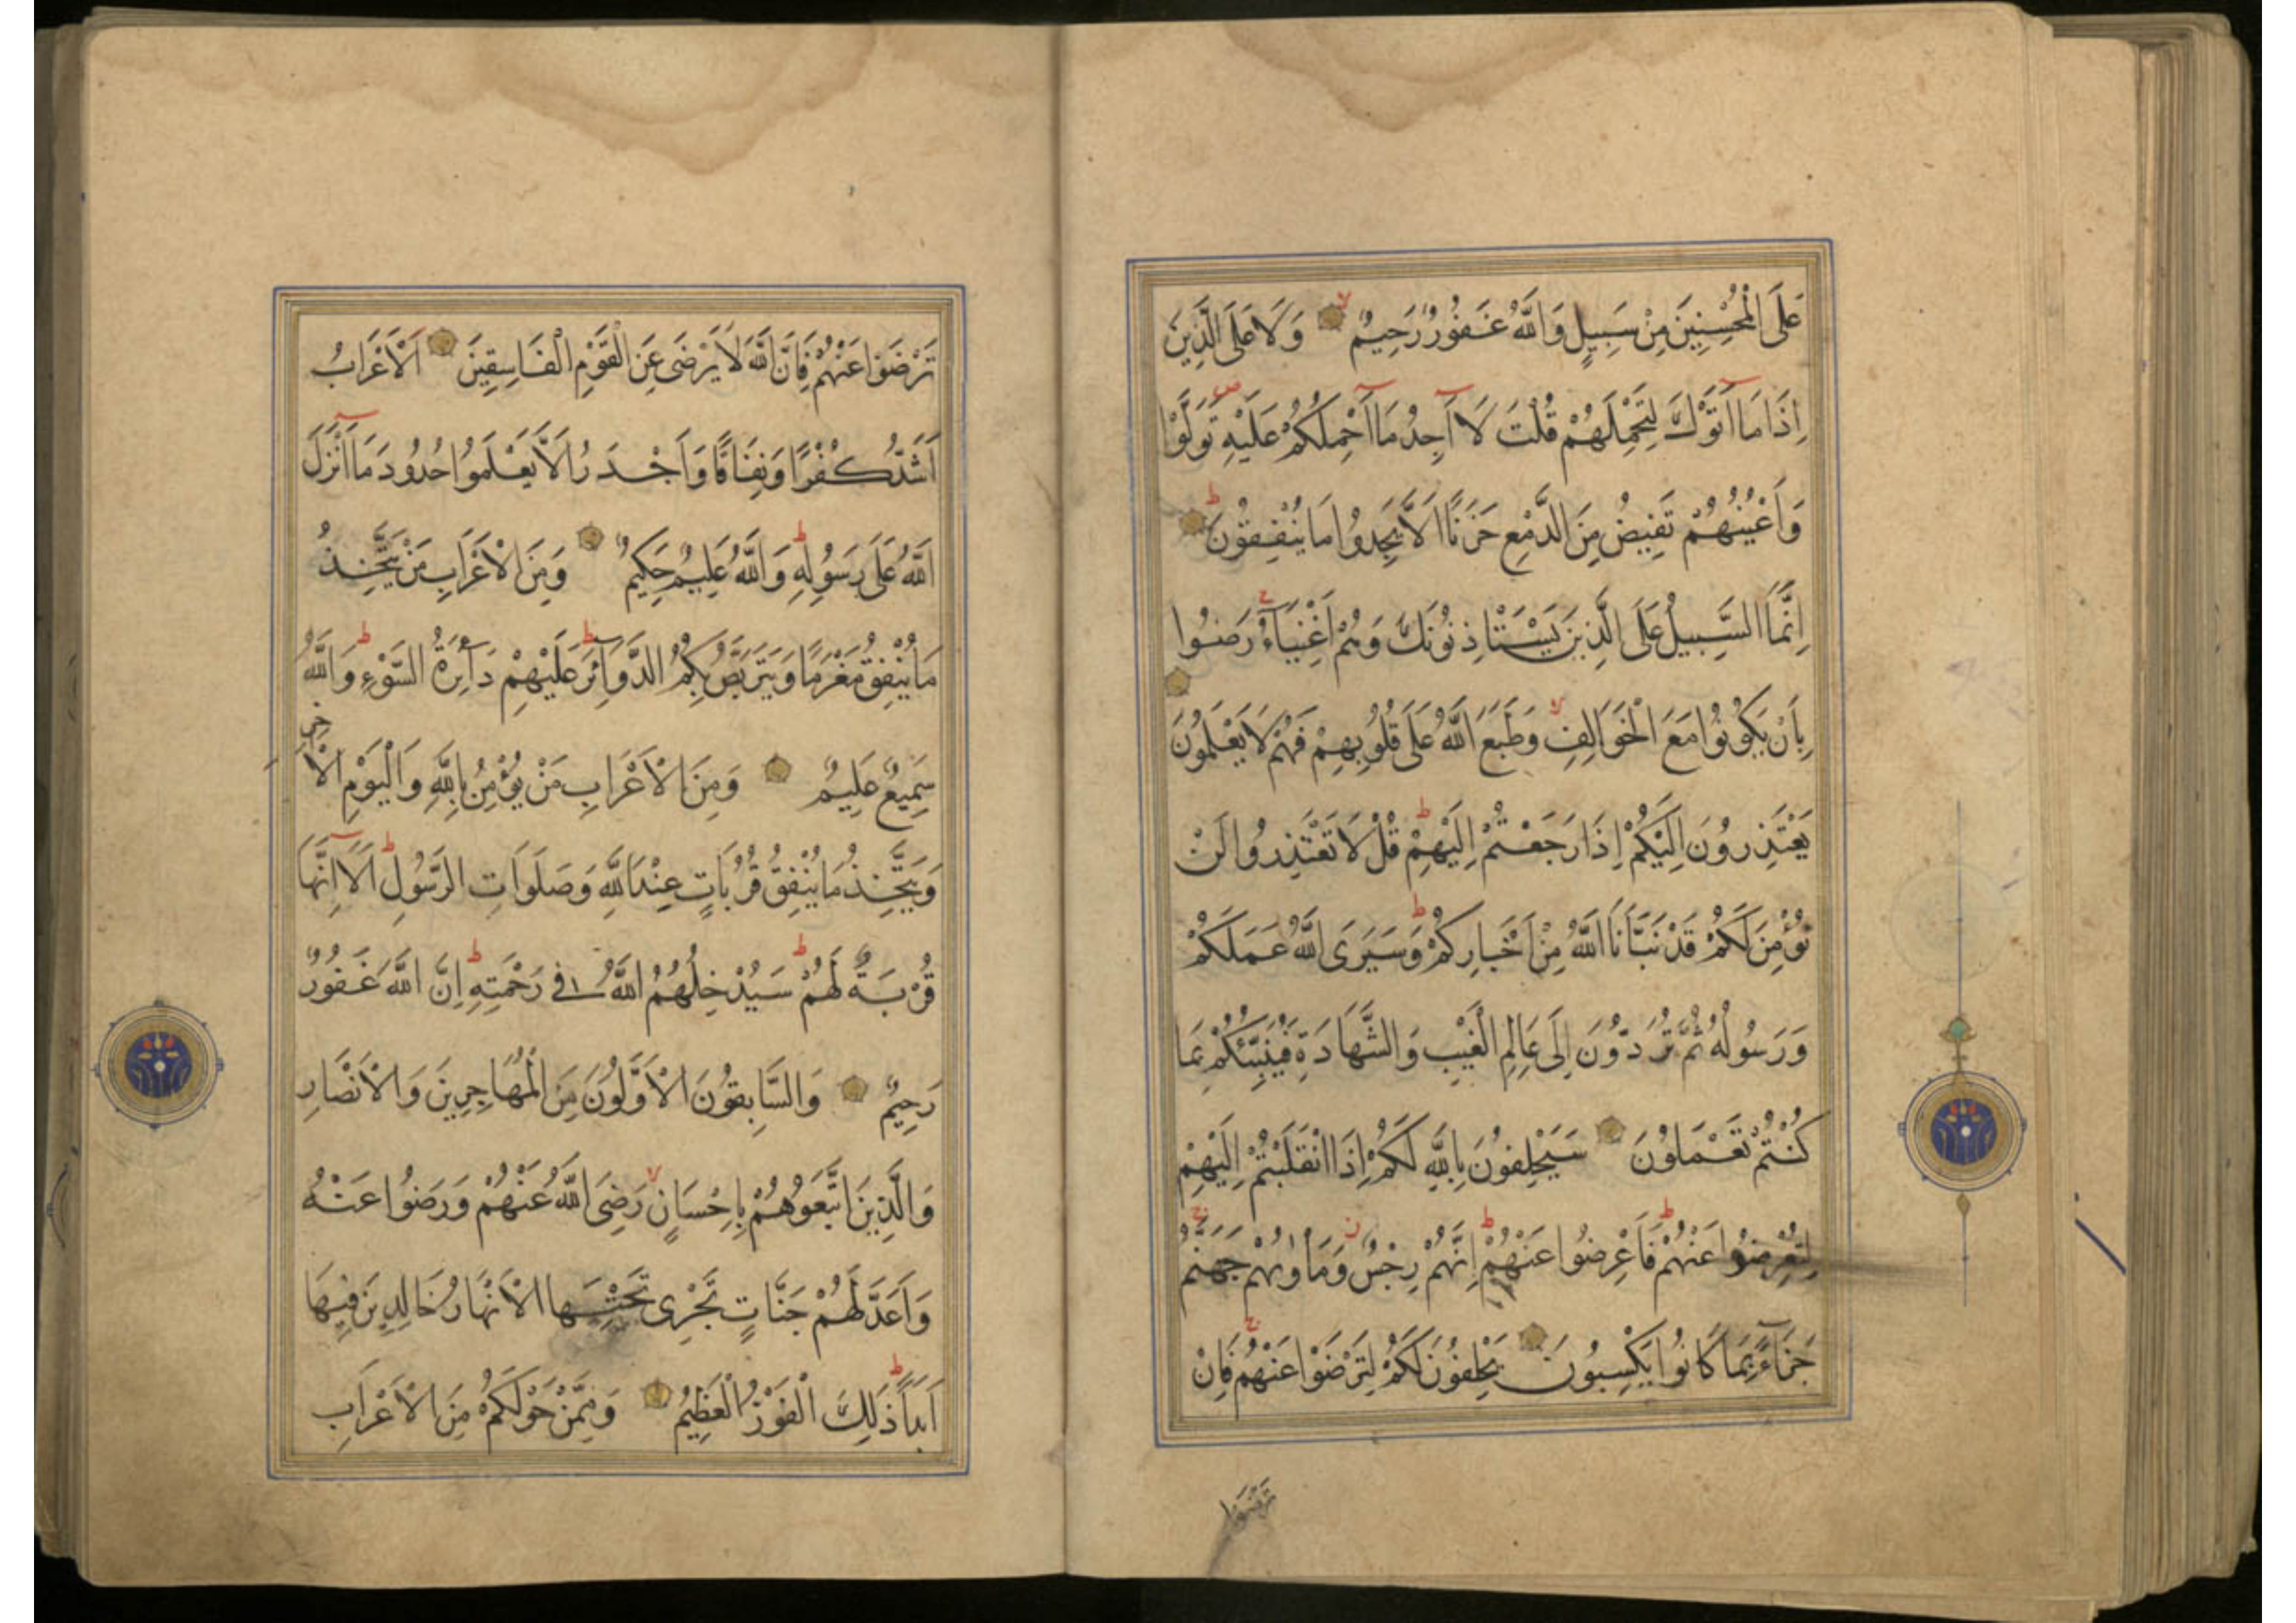 عَلَى الْمُحْسِنِينَ مِنْ سَبِيلٍ وَاللّٰهُ غَفُورٌ رَحِيمٌ وَلَا عَلَى الَّذِينَ
اِذَا مَا اَتَوْكَ لِتَحْمِلَهُمْ قُلْتَ لَا اَجِدُ مَا اَحْمِلُكُمْ عَلَيْهِ تَوَلَّوْا
وَاَعْيُنُهُمْ تَفِيضُ مِنَ الدَّمْعِ حَزَنًا اَلَّا يَجِدُوا مَا يُنْفِقُونَ
اِنَّمَا السَّبِيلُ عَلَى الَّذِينَ يَسْتَاْذِنُونَكَ وَهُمْ اَغْنِيَاءُ رَضُوا
بِاَنْ يَكُونُوا مَعَ الْخَوَالِفِ وَطَبَعَ اللّٰهُ عَلَى قُلُوبِهِمْ فَهُمْ لَا يَعْلَمُونَ
يَعْتَذِرُونَ اِلَيْكُمْ اِذَا رَجَعْتُمْ اِلَيْهِمْ قُلْ لَا تَعْتَذِرُوا لَنْ
نُؤْمِنَ لَكُمْ قَدْ نَبَّاَنَا اللّٰهُ مِنْ اَخْبَارِكُمْ وَسَيَرَى اللّٰهُ عَمَلَكُمْ
وَرَسُولُهُ ثُمَّ تُرَدُّونَ اِلَى عَالِمِ الْغَيْبِ وَالشَّهَادَةِ فَيُنَبِّئُكُمْ بِمَا
كُنْتُمْ تَعْمَلُونَ سَيَحْلِفُونَ بِاللّٰهِ لَكُمْ اِذَا انْقَلَبْتُمْ اِلَيْهِمْ
لِتُعْرِضُوا عَنْهُمْ فَاَعْرِضُوا عَنْهُمْ اِنَّهُمْ رِجْسٌ وَمَاْوٰيهُمْ جَهَنَّمُ
جَزَاءً بِمَا كَانُوا يَكْسِبُونَ يَحْلِفُونَ لَكُمْ لِتَرْضَوْا عَنْهُمْ فَاِنْ
تَرْضَوْا
تَرْضَوْا عَنْهُمْ فَاِنَّ اللّٰهَ لَا يَرْضَى عَنِ الْقَوْمِ الْفَاسِقِينَ اَلْاَعْرَابُ
اَشَدُّ كُفْرًا وَنِفَاقًا وَاَجْدَرُ اَلَّا يَعْلَمُوا حُدُودَ مَا اَنْزَلَ
اللّٰهُ عَلَى رَسُولِهِ وَاللّٰهُ عَلِيمٌ حَكِيمٌ وَمِنَ الْاَعْرَابِ مَنْ يَتَّخِذُ
مَا يُنْفِقُ مَغْرَمًا وَيَتَرَبَّصُ بِكُمُ الدَّوَائِرَ عَلَيْهِمْ دَائِرَةُ السَّوْءِ وَاللّٰهُ
سَمِيعٌ عَلِيمٌ وَمِنَ الْاَعْرَابِ مَنْ يُؤْمِنُ بِاللّٰهِ وَالْيَوْمِ الْاٰخِرِ
وَيَتَّخِذُ مَا يُنْفِقُ قُرُبَاتٍ عِنْدَ اللّٰهِ وَصَلَوَاتِ الرَّسُولِ اَلَا اِنَّهَا
قُرْبَةٌ لَهُمْ سَيُدْخِلُهُمُ اللّٰهُ فِي رَحْمَتِهِ اِنَّ اللّٰهَ غَفُورٌ
رَحِيمٌ وَالسَّابِقُونَ الْاَوَّلُونَ مِنَ الْمُهَاجِرِينَ وَالْاَنْصَارِ
وَالَّذِينَ اتَّبَعُوهُمْ بِاِحْسَانٍ رَضِيَ اللّٰهُ عَنْهُمْ وَرَضُوا عَنْهُ
وَاَعَدَّ لَهُمْ جَنَّاتٍ تَجْرِي تَحْتَهَا الْاَنْهَارُ خَالِدِينَ فِيهَا
اَبَدًا ذٰلِكَ الْفَوْزُ الْعَظِيمُ وَمِمَّنْ حَوْلَكُمْ مِنَ الْاَعْرَابِ